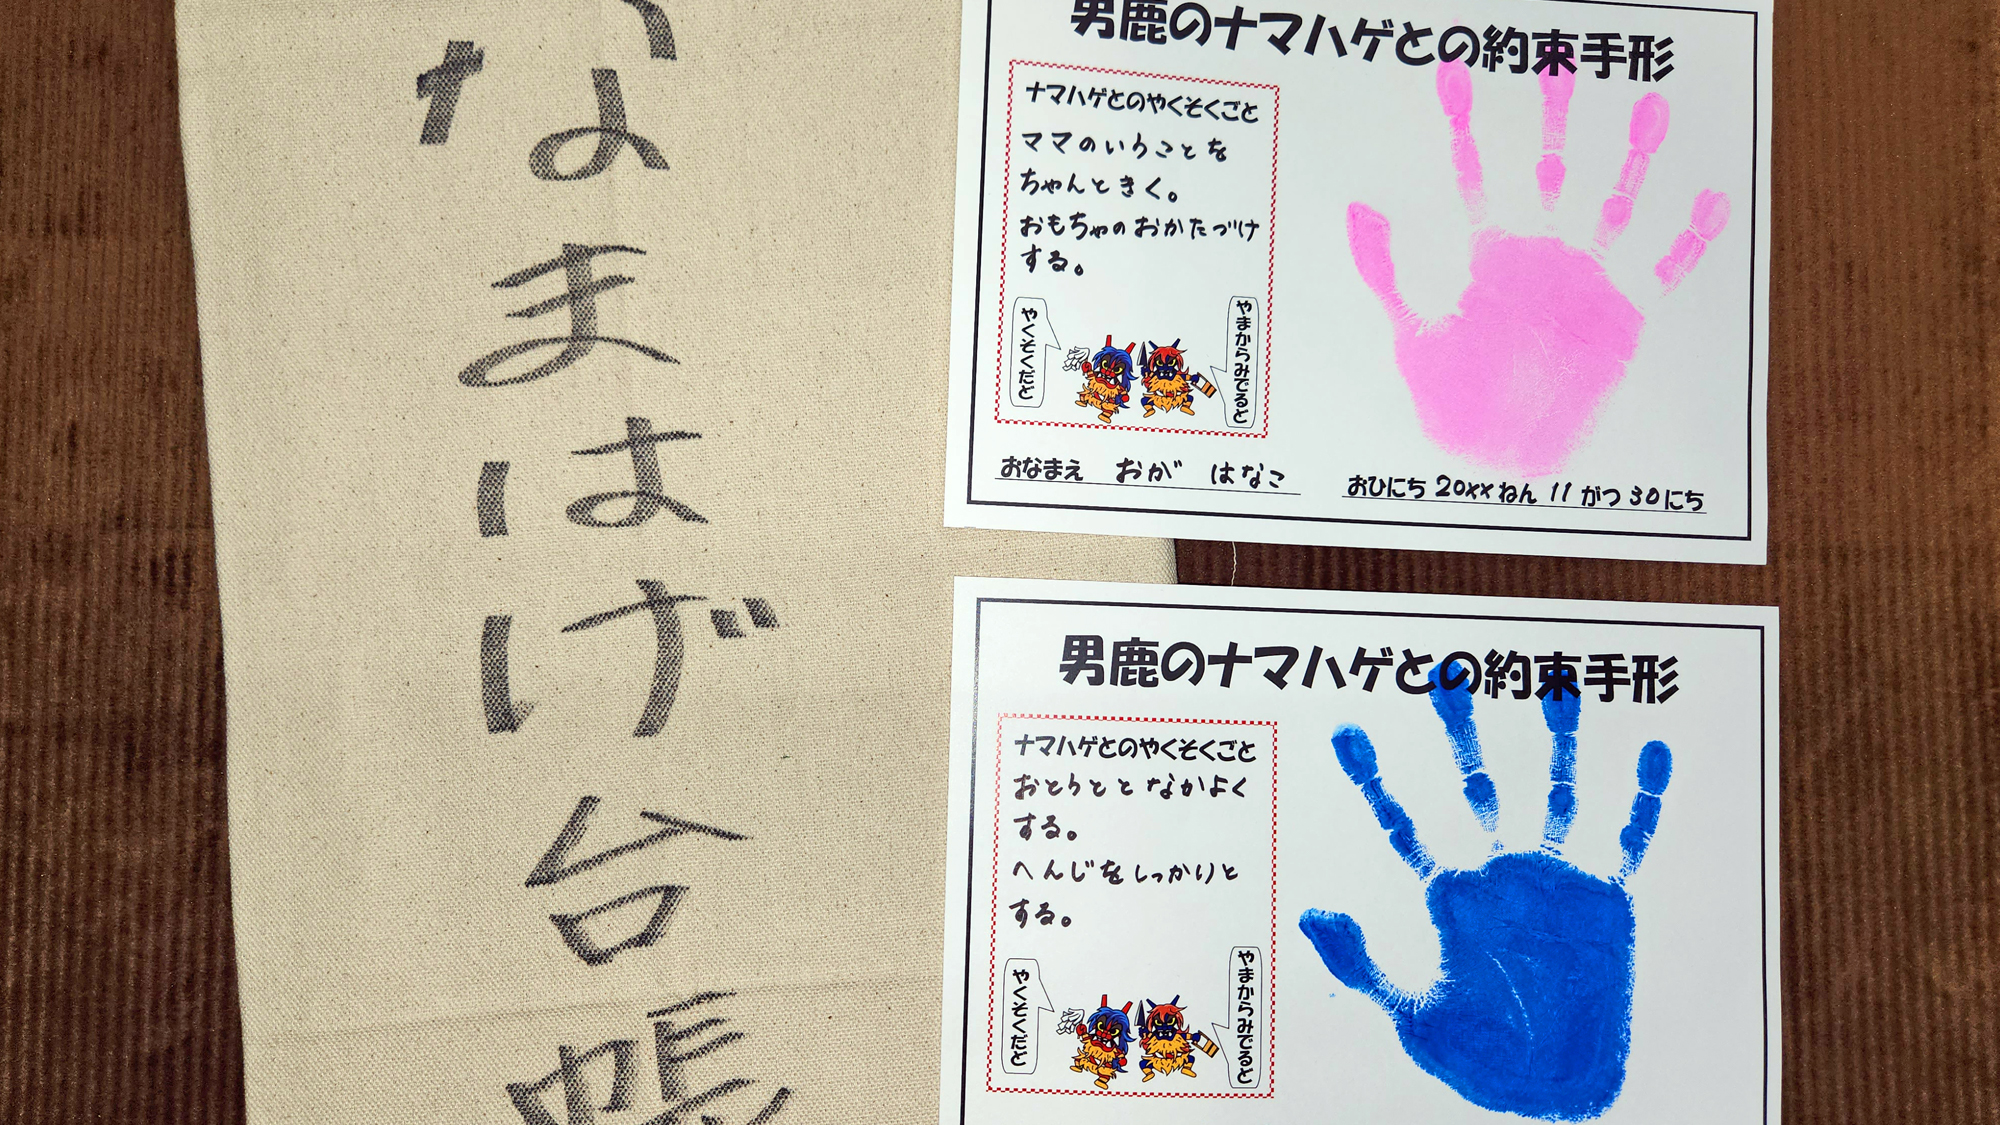 なまはげ台帳
男鹿のナマハゲとの約束手形
ナマハゲとのやくそくごと
ママのいうことを
ちゃんときく。
おもちゃのおかたづけ
する。
やくそくだど
やまからみでるど
おなまえ おが はなこ
おひにち 20xx ねん 11 がつ 30 にち
男鹿のナマハゲとの約束手形
ナマハゲとのやくそくごと
おとうととなかよく
する。
へんじをしっかりと
する。
やくそくだど
やまからみでるど